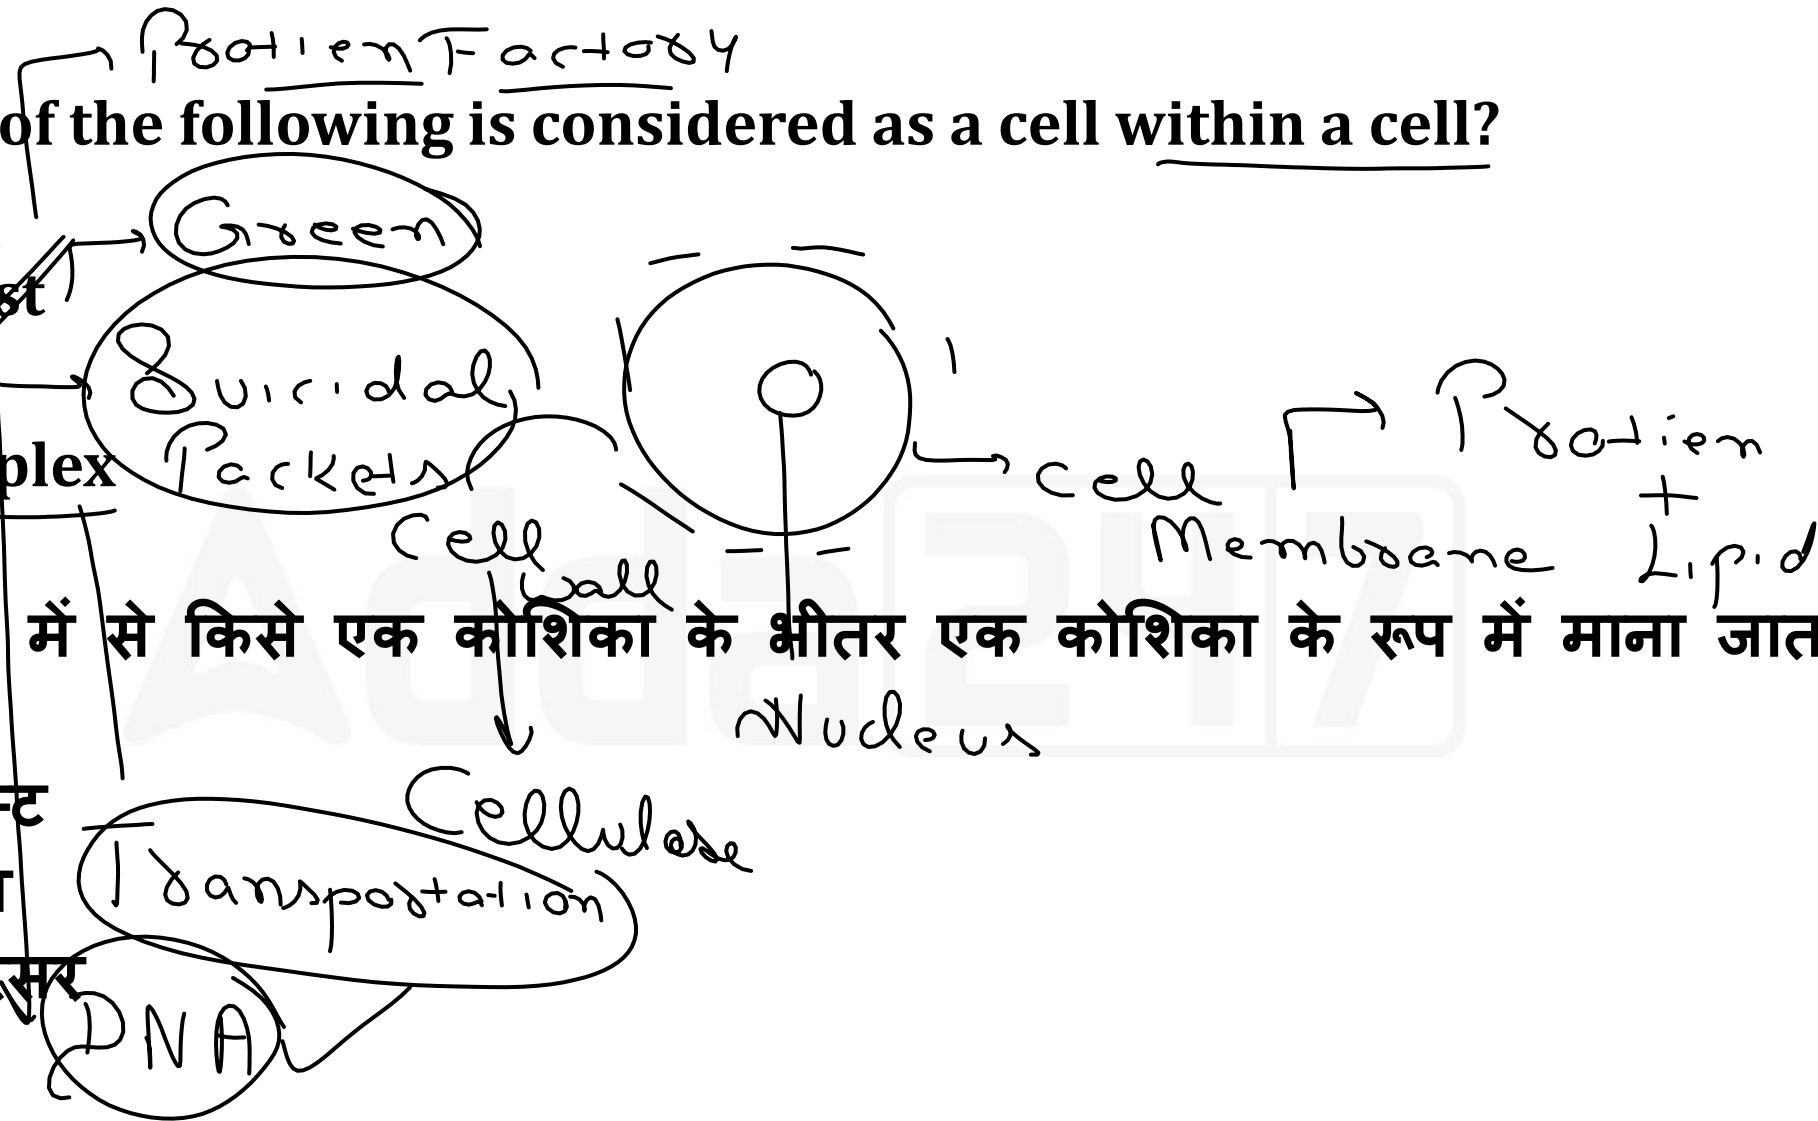 Protien Factory
of the following is considered as a cell within a cell?
Green
st
Suicidal
Packets
plex
Protien
+
Lipid
Cell
Membrane
Cell
wall
Adda247
में से किसे एक कोशिका के भीतर एक कोशिका के रूप में माना जात
Nucleus
न्ट
Cellulose
Transportation
सर
DNA